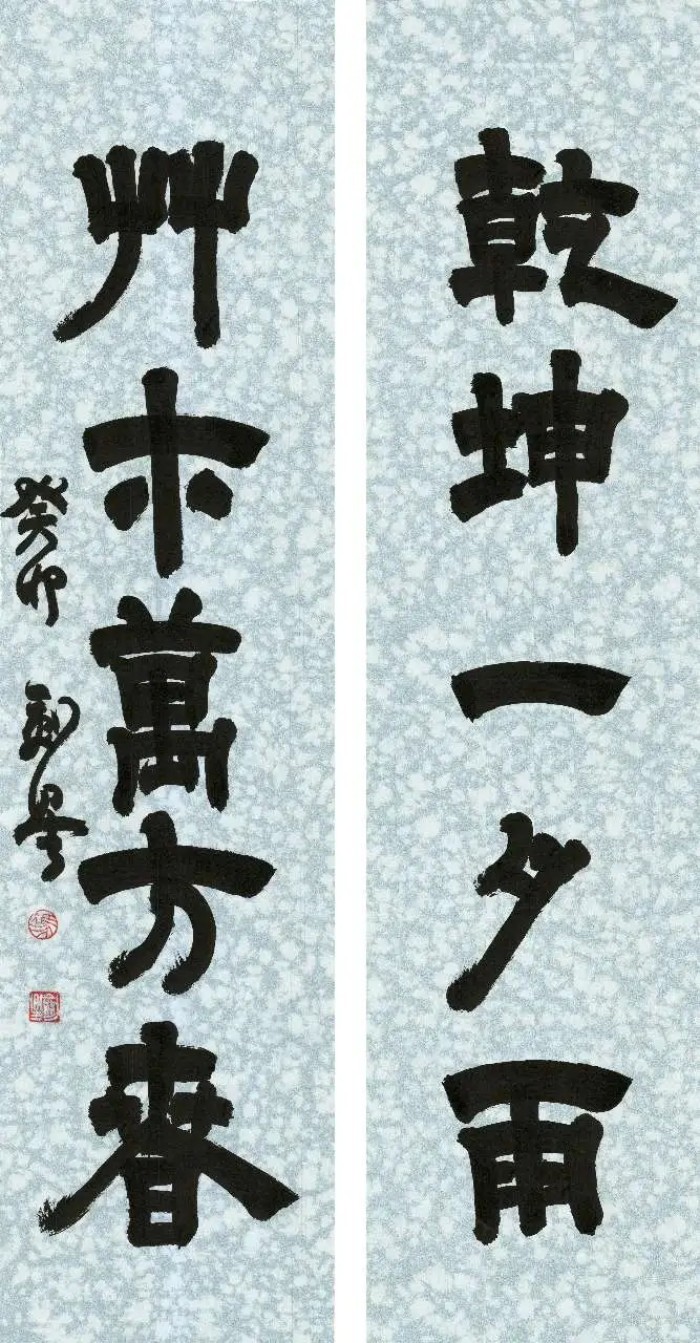 乾坤一夕雨
艸木萬方春
癸卯